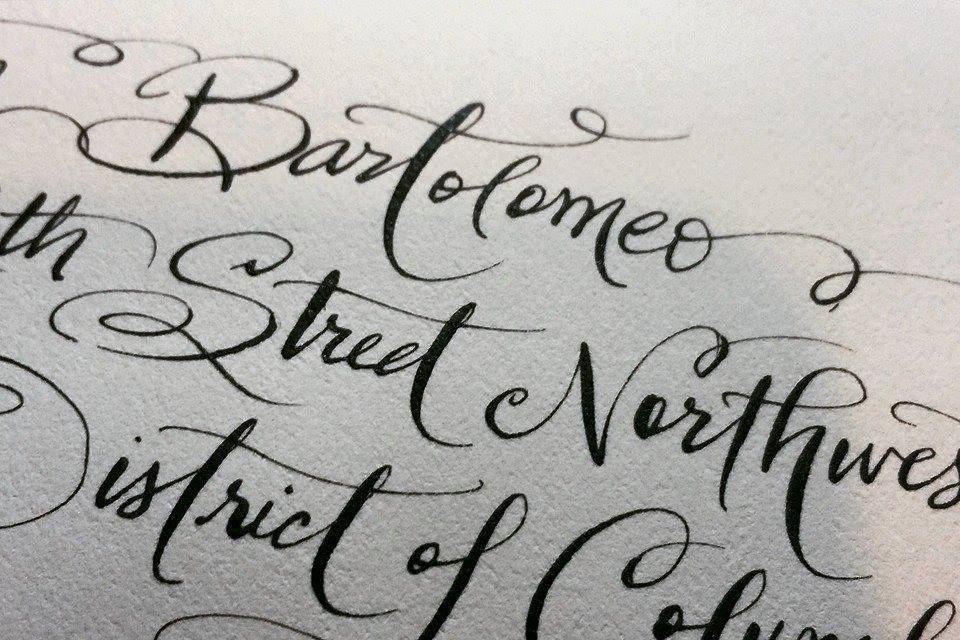 Bartolomeo
th Street Northwes
District of Colum